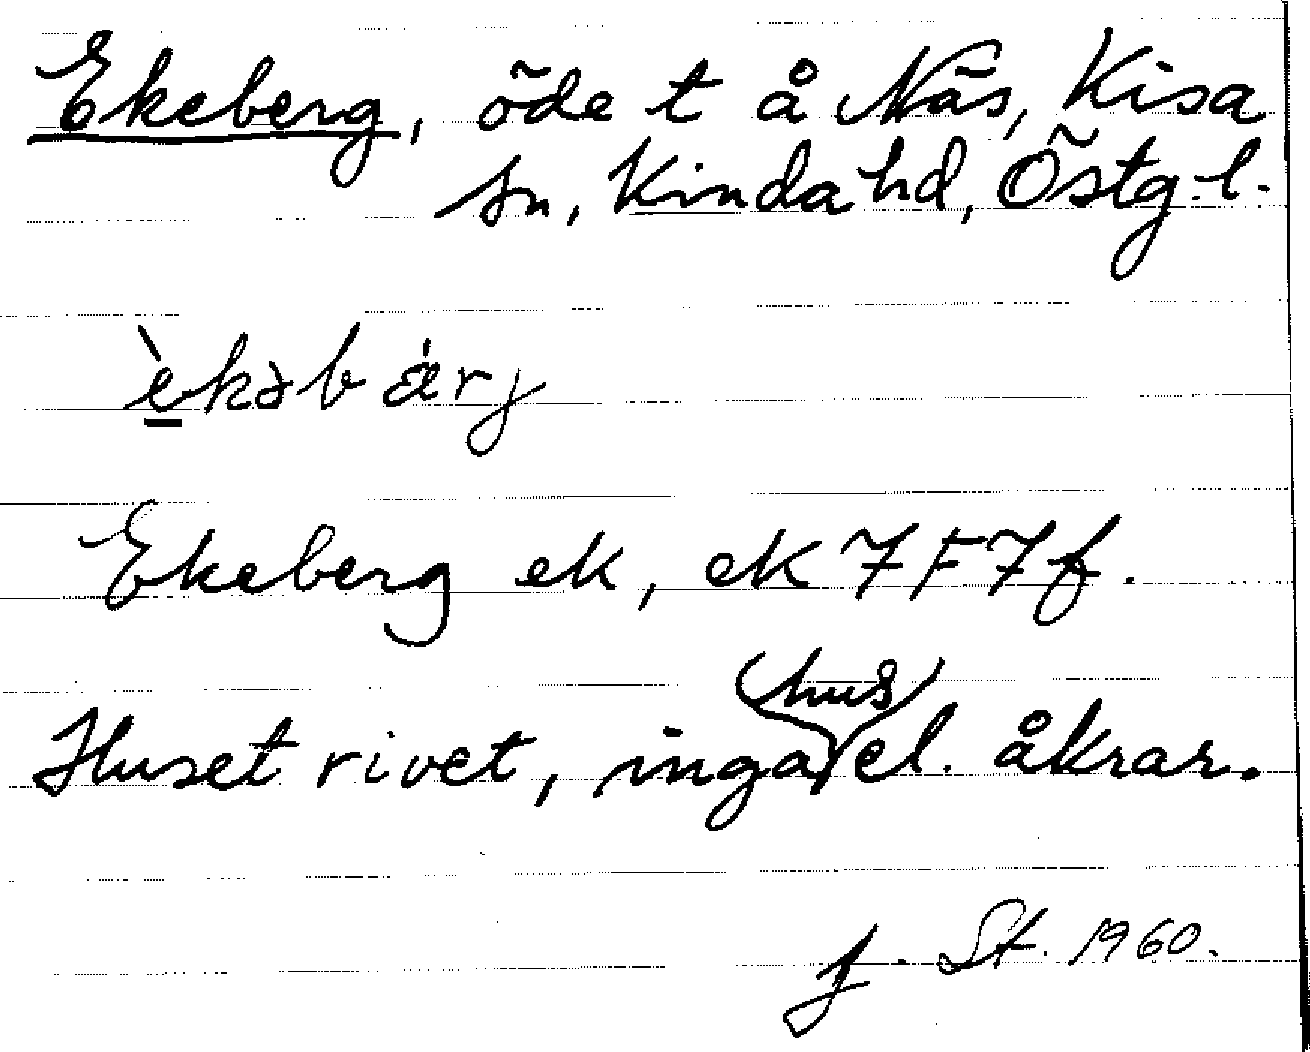 Ekeberg, öde t å Näs, Kisa
sn, Kinda hd, Östg. l.
èkəbä́rj
Ekeberg ek, ek 7F7f.
Huset rivet, inga hus el. åkrar.
J. St. 1960.